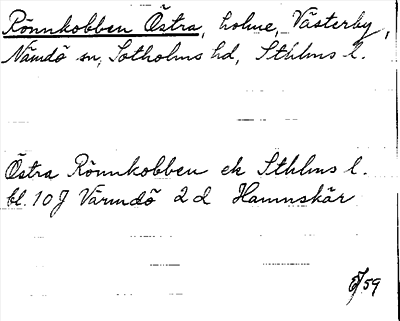 Rönnkobben Östra, holme, Västerby,
Nämdö sn, Sotholms hd, Sthlms l.
Östra Rönnkobben ek Sthlms l.
bl. 10 J Värmdö 2 d Hamnskär
59